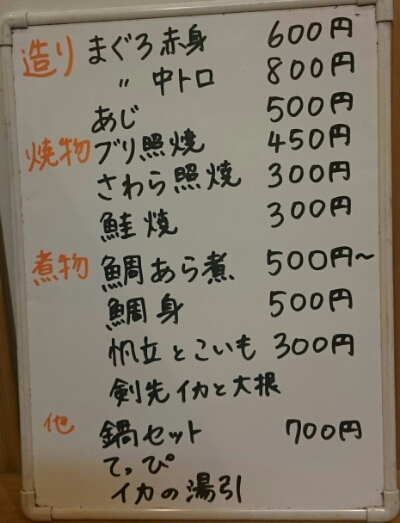 造り まぐろ赤身 600円
〃 中トロ 800円
あじ 500円
焼物 ブリ照焼 450円
さわら照焼 300円
鮭焼 300円
煮物 鯛あら煮 500円〜
鯛身 500円
帆立とこいも 300円
剣先イカと大根
他 鍋セット 700円
てっぴ
イカの湯引